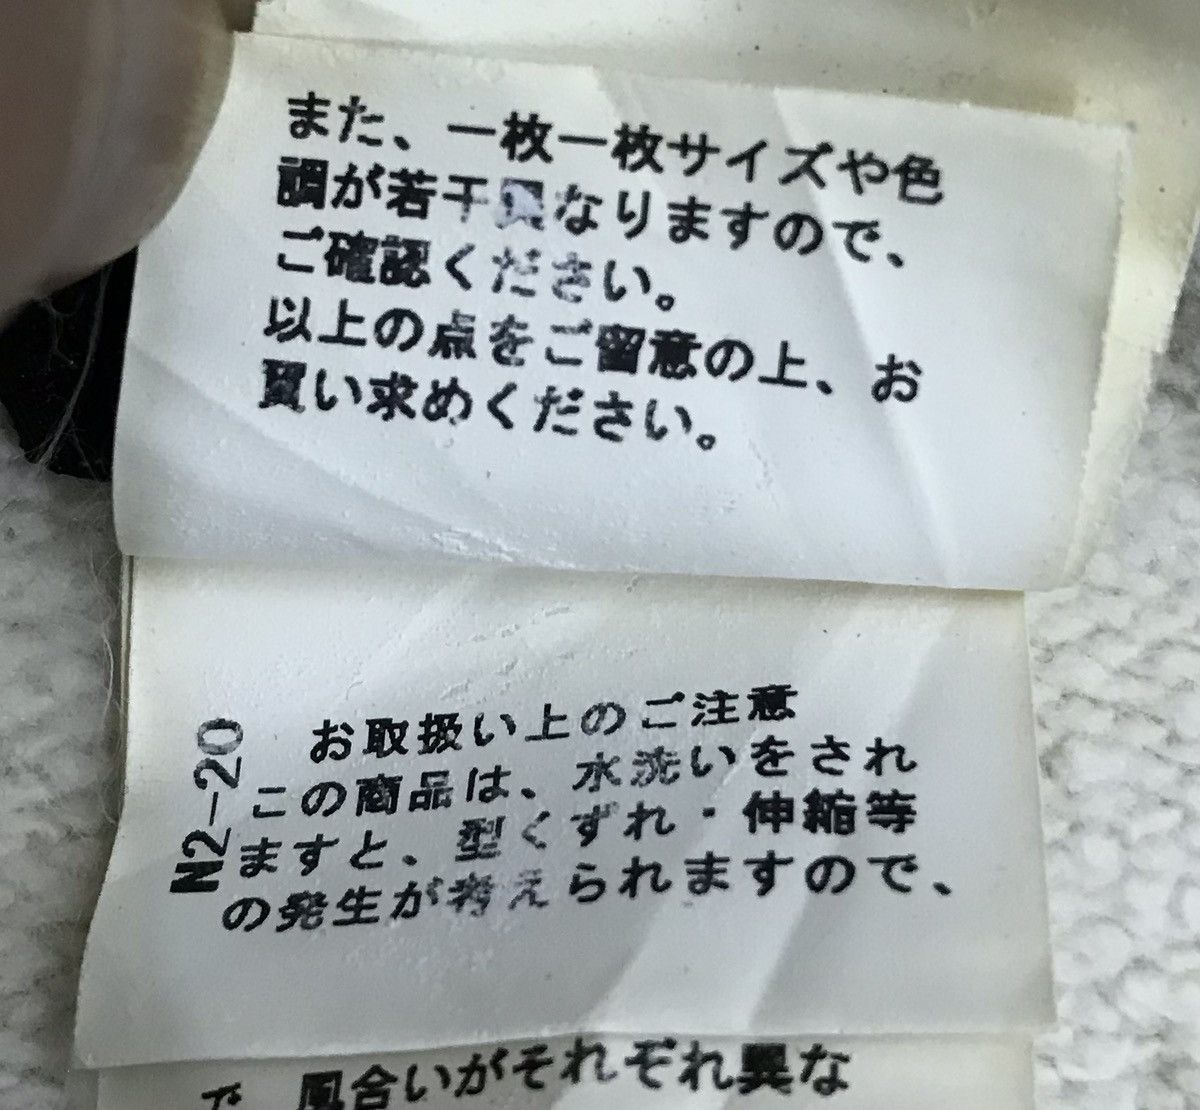 また、一枚一枚サイズや色
調が若干異なりますので、
ご確認ください。
以上の点をご留意の上、お
買い求めください。
N2-20
お取扱い上のご注意
この商品は、水洗いをされ
ますと、型くずれ・伸縮等
の発生が考えられますので、
で、風合いがそれぞれ異な